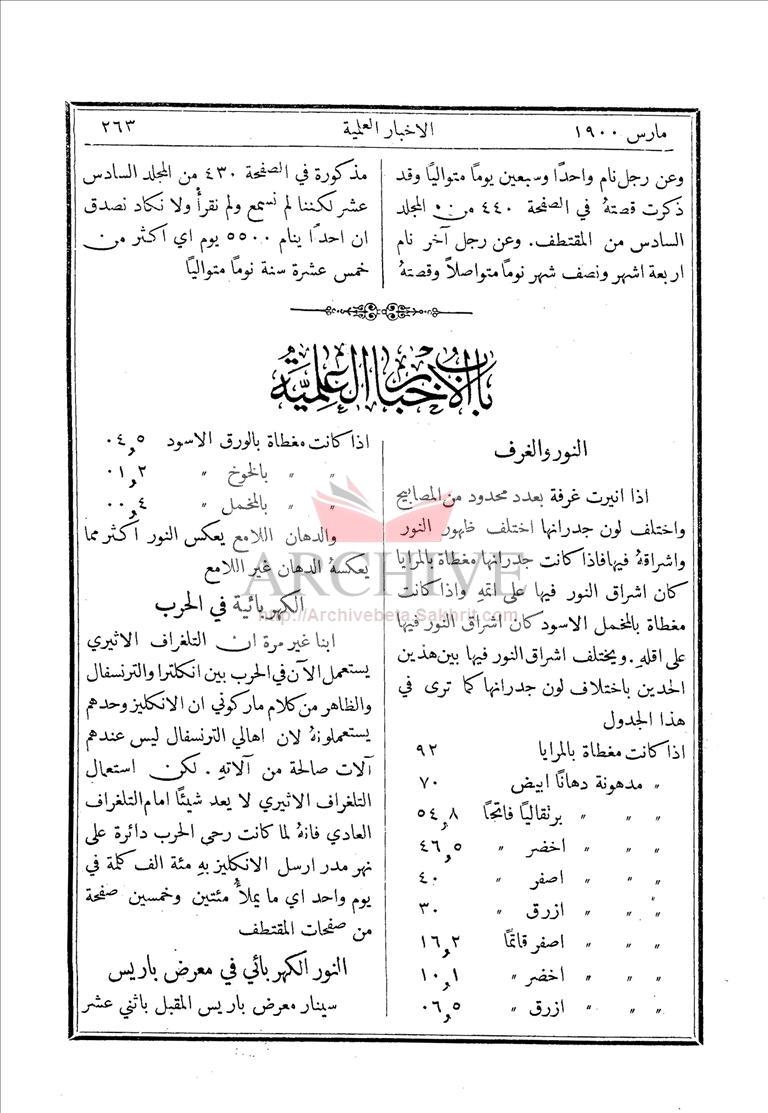 مارس ١٩٠٠
الاخبار العلمية
٢٦٣
وعن رجل نام واحدًا وسبعين يومًا متواليًا وقد
ذكرت قصتهُ في الصفحة ٤٤٠ من المجلد
السادس من المقتطف. وعن رجل آخر نام
اربعة اشهر ونصف شهر نومًا متواصلاً وقصتهُ
مذكورة في الصفحة ٤٣٠ من المجلد السادس
عشر لكننا لم نسمع ولم نقرأْ ولا نكاد نصدق
ان احدًا ينام ٥٥٠٠ يوم اي اكثر من
خمس عشرة سنة نومًا متواليًا
باب الاخبار العلمية
النور والغرف
اذا انيرت غرفة بعدد محدود من المصابيح
واختلف لون جدرانها اختلف ظهور النور
واشراقهُ فيها فاذا كانت جدرانها مغطاة بالمرايا
كان اشراق النور فيها على اتمهِ واذا كانت
مغطاة بالمخمل الاسود كان اشراق النور فيها
على اقلهِ. ويختلف اشراق النور فيها بين هذين
الحدين باختلاف لون جدرانها كما ترى في
هذا الجدول
اذا كانت مغطاة بالمرايا ٩٢
" مدهونة دهانًا ابيض ٧٠
" " " برتقاليًا فاتحًا ٥٤٫٨
" " " اخضر " ٤٦٫٥
" " " اصفر " ٤٠
" " " ازرق " ٣٠
" " " اصفر قاتمًا ١٦٫٢
" " " اخضر " ١٠٫١
" " " ازرق " ٠٦٫٥
اذا كانت مغطاة بالورق الاسود ٠٤٫٥
" " " بالخوخ " ٠١٫٢
" " " بالمخمل " ٠٠٫٤
والدهان اللامع يعكس النور اكثر مما
يعكسهُ الدهان غير اللامع
الكهربائية في الحرب
ابنا غير مرة ان التلغراف الاثيري
يستعمل الآن في الحرب بين انكلترا والترنسفال
والظاهر من كلام ماركوني ان الانكليز وحدهم
يستعملونهُ لان اهالي الترنسفال ليس عندهم
آلات صالحة من آلاتهِ. لكن استعمال
التلغراف الاثيري لا يعد شيئًا امام التلغراف
العادي فانهُ لما كانت رحى الحرب دائرة على
نهر مدر ارسل الانكليز بهِ مئة الف كلمة في
يوم واحد اي ما يملأُ مئتين وخمسين صفحة
من صفحات المقتطف
النور الكهربائي في معرض باريس
سينار معرض باريس المقبل باثني عشر
ARCHIVE
http://Archivebeta.Sakhrit.com